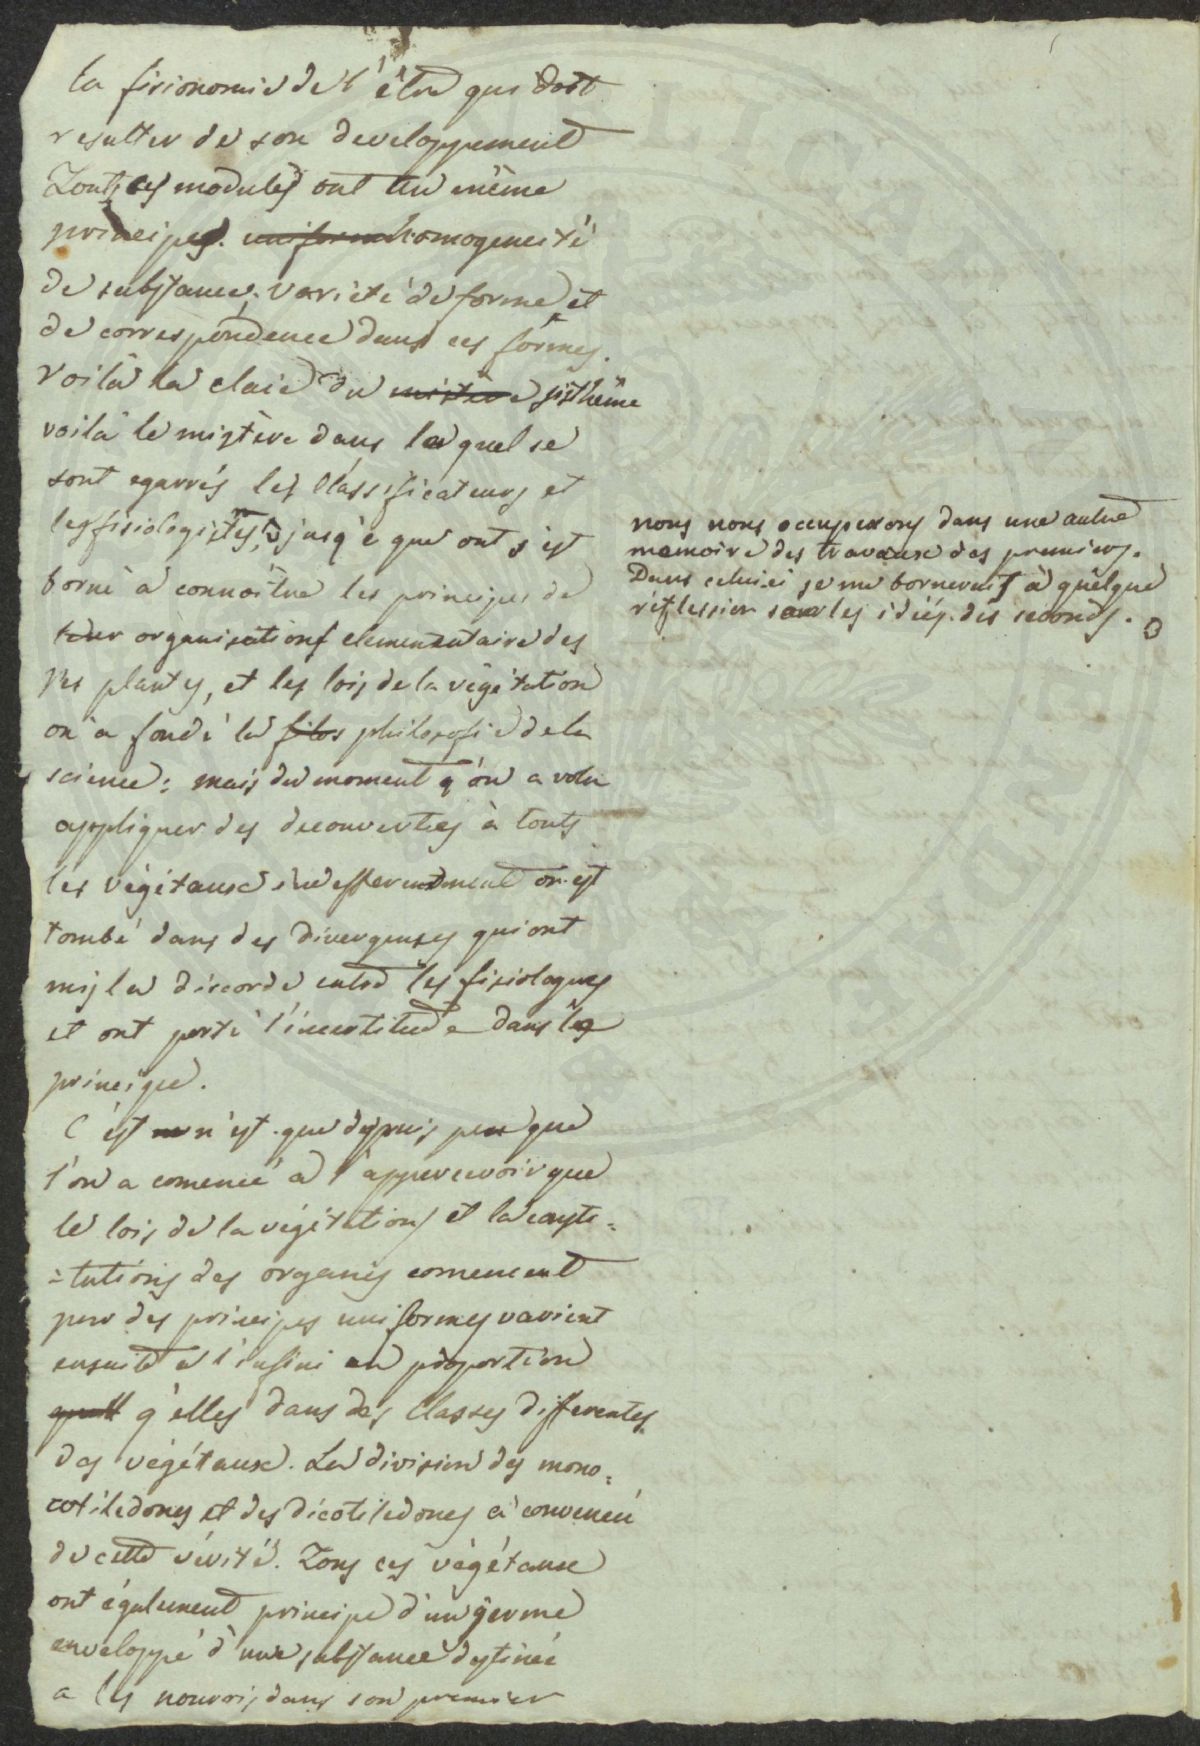 la fisionomie de l'être qui doit
resulter de son developpement
Touts ces modules ont un même
principes. uniform homogeneité
de substance, varieté de forme, et
de correspondence dans ces formes.
Voilà la claie du mistere sisthême
voilà le mistère dans le quel se
sont egarrés les classificateurs et
les fisiologistes, jusq'e que ont s'est
borné à connoître les principes de
leur organisations elementaire des
des plantes, et les lois de la végétation
on a fondé la filos philosofie de la
science: mais du moment q'on a volu
appliquer des decouvertes à touts
les végétaux indefferentment on est
tombé dans des divergenses qui ont
mis la discorde entre les fisiologues
et ont porté l'incertitude dans le
principe.
C'est n'est que depuis peu que
l'on a comencé a l'appercevoir que
le lois de la végétations et la consti=
=tutions des organes comencent
par des principes uniformes varient
ensuite a l'infini en proportion
quell q'elles dans des classes differentes
des végétaux. La division des mono=
cotiledones et des dicotiledones a convencu
de cette vérité. Tous ces végétaux
ont également principe d'un germe
enveloppé d'une substance destinée
a les nourris dans son premier
nous nous occuperons dans une autre
memoire des travaux des premiers.
Dans celui ci je me bornerais à quelque
réflession sur les idées des seconds.